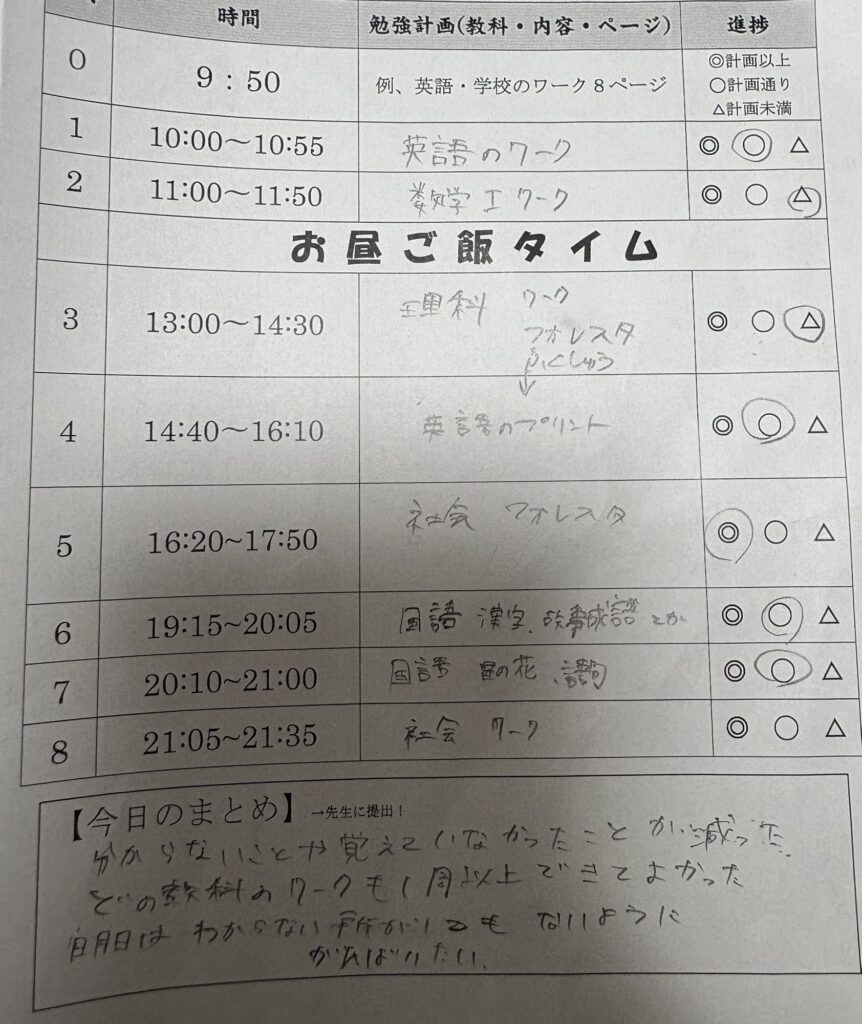 時間 勉強計画(教科・内容・ページ) 進捗
0 9:50 例、英語・学校のワーク8ページ ◎計画以上
○計画通り
△計画未満
1 10:00～10:55 英語のワーク ◎ ○ △
2 11:00～11:50 数学 I ワーク ◎ ○ △
お昼ご飯タイム
3 13:00～14:30 理科 ワーク ◎ ○ △
フォレスタ
ふくしゅう
↓
4 14:40～16:10 英語のプリント ◎ ○ △
5 16:20~17:50 社会 フォレスタ ◎ ○ △
6 19:15~20:05 国語 漢字、故事成語とか ◎ ○ △
7 20:10~21:00 国語 の花、 ◎ ○ △
8 21:05~21:35 社会 ワーク ◎ ○ △
【今日のまとめ】→先生に提出！
分からないことや覚えていなかったことが減った。
どの教科のワークも1周以上できてよかった
明日は わからない所が1つも ないように
がんばりたい。